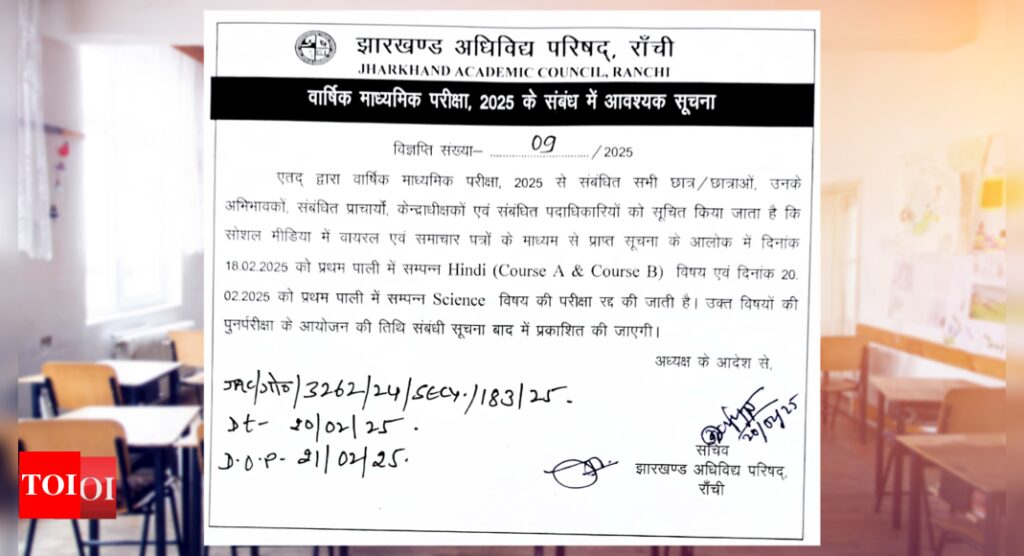 झारखण्ड अधिविद्य परिषद्, राँची
JHARKHAND ACADEMIC COUNCIL, RANCHI
वार्षिक माध्यमिक परीक्षा, 2025 के संबंध में आवश्यक सूचना
विज्ञप्ति संख्या– .......09......./2025
एतद् द्वारा वार्षिक माध्यमिक परीक्षा, 2025 से संबंधित सभी छात्र/छात्राओं, उनके
अभिभावकों, संबंधित प्राचार्यो, केन्द्राधीक्षकों एवं संबंधित पदाधिकारियों को सूचित किया जाता है कि
सोशल मीडिया में वायरल एवं समाचार पत्रों के माध्यम से प्राप्त सूचना के आलोक में दिनांक
18.02.2025 को प्रथम पाली में सम्पन्न Hindi (Course A & Course B) विषय एवं दिनांक 20.
02.2025 को प्रथम पाली में सम्पन्न Science विषय की परीक्षा रद्द की जाती है। उक्त विषयों की
पुनर्परीक्षा के आयोजन की तिथि संबंधी सूचना बाद में प्रकाशित की जाएगी।
अध्यक्ष के आदेश से,
JAC/गो०/3262/24/SECY./183/25.
Dt- 20/02/25.
D.O.P- 21/02/25.
20/02/25
सचिव
झारखण्ड अधिविद्य परिषद्,
राँची
TOI TOI